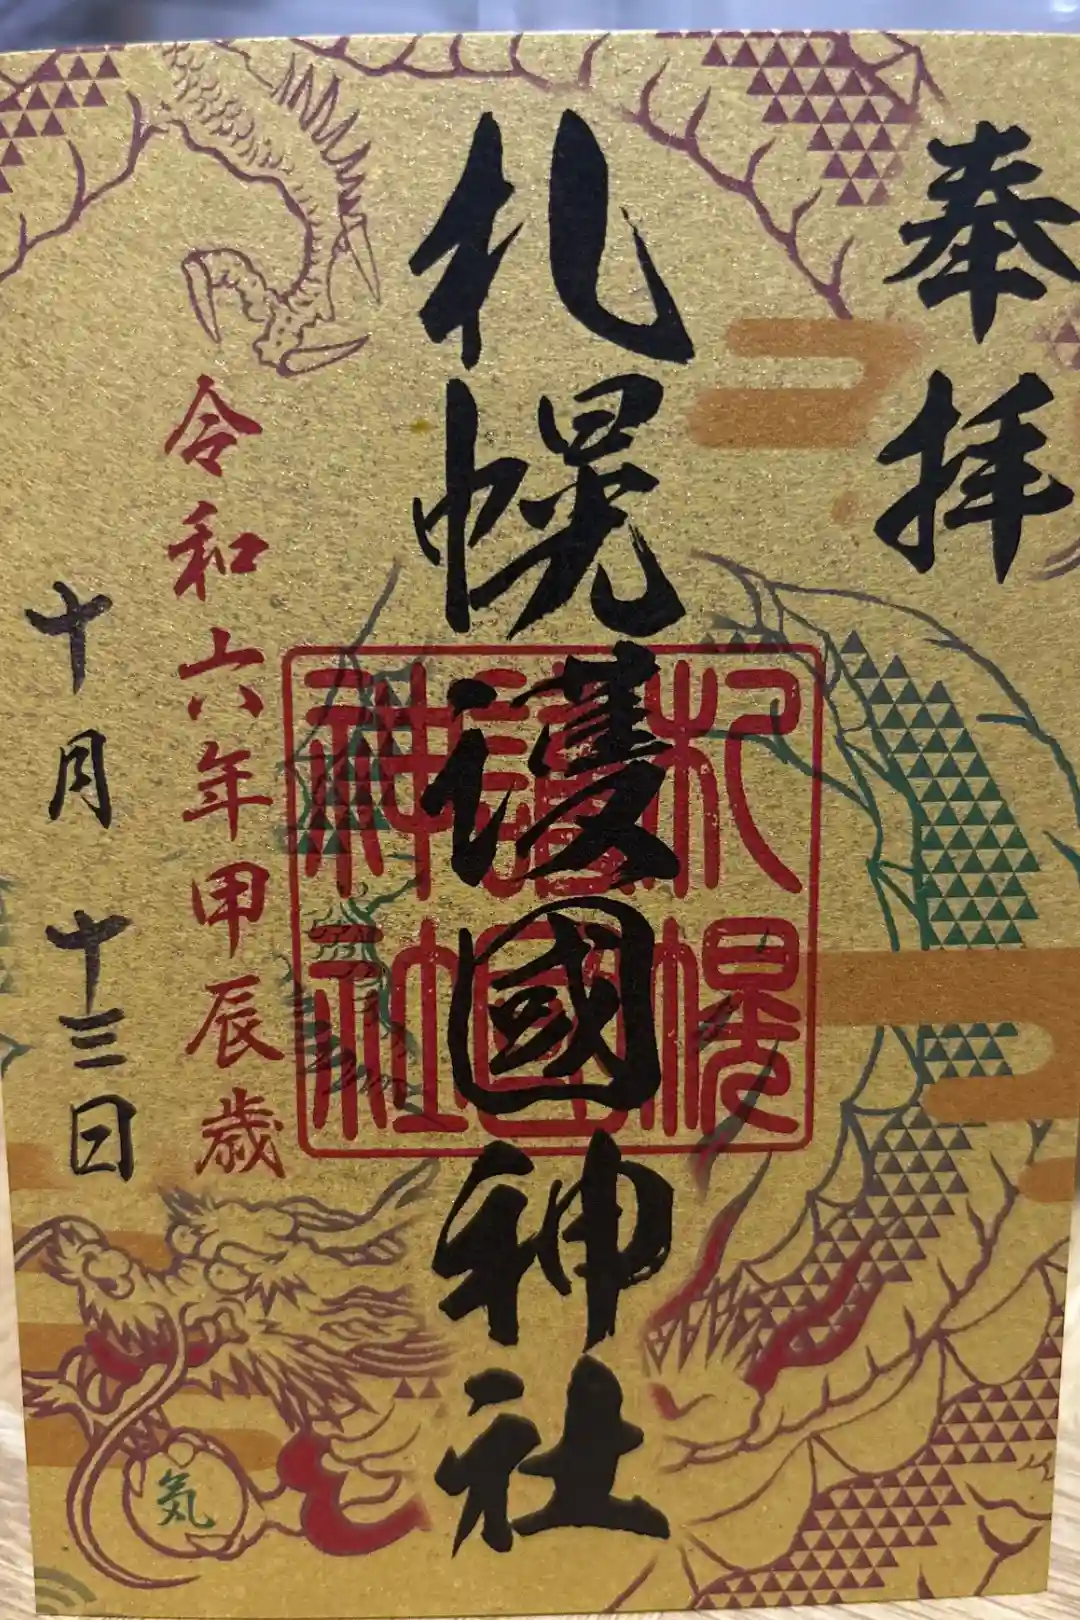 奉拝
札幌護國神社
札幌護國神社
令和六年甲辰歳
十月十三日
気